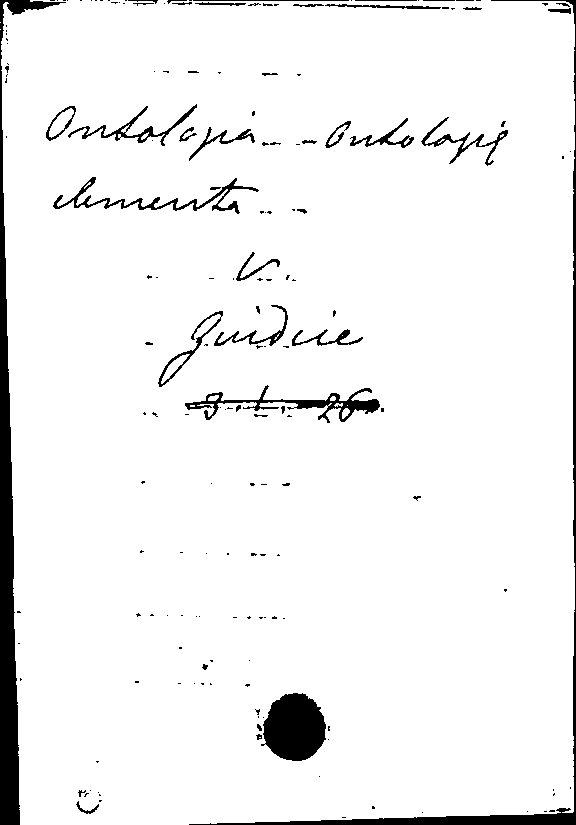 Ontologia - - Ontologię
elementa - -
V.
Giudice
3. 1. 26.